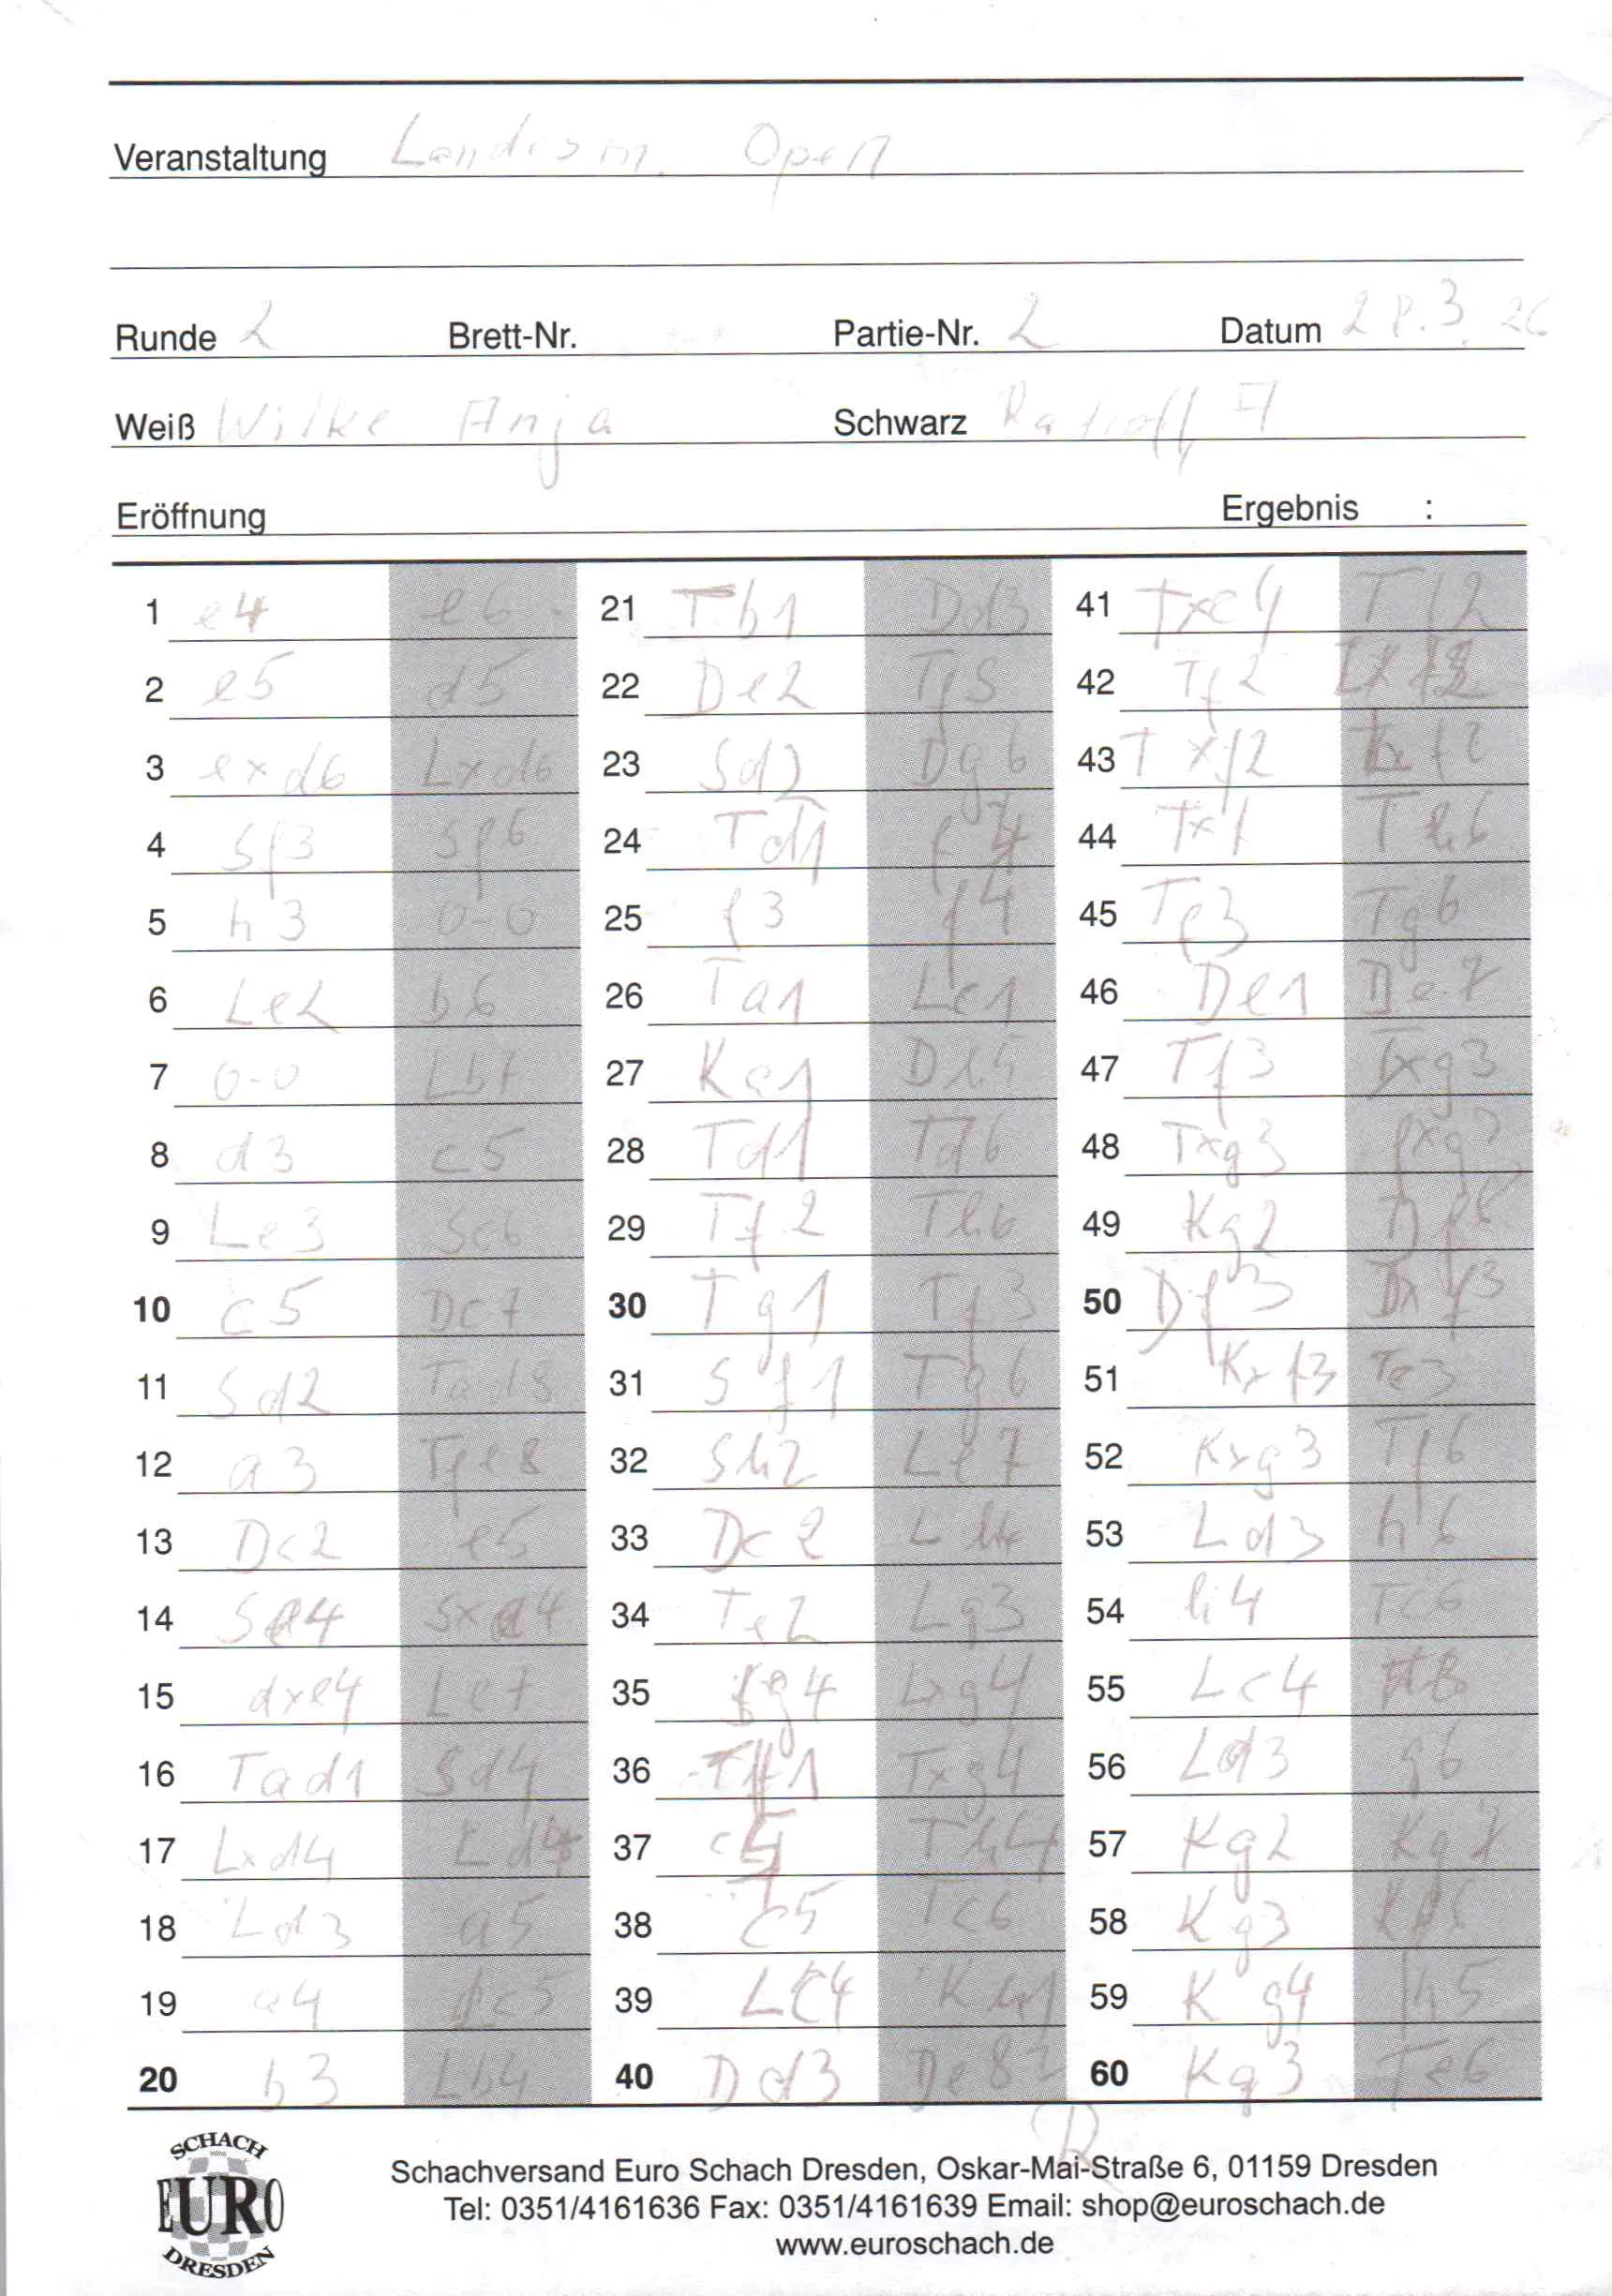 Veranstaltung Landesm. Open
Runde 2 Brett-Nr. Partie-Nr. 2 Datum 28.3.26
Weiß Wilke Anja Schwarz
Eröffnung Ergebnis :
1 e4 e6 21 Tb1 Dd3 41 Txe4 Tf2
2 e5 d5 22 De2 Tf5 42 Tf2
3 exd6 Lxd6 23 Sd2 Dg6 43 Txf2
4 Sf3 Sf6 24 Td1 44 Th6
5 h3 0-0 25 f3 f4 45 Tf3 Tg6
6 Le2 b6 26 Ta1 Lc1 46 De1 De7
7 0-0 Lb7 27 Ke1 Dh5 47 Tf3 Txg3
8 d3 c5 28 Td1 Td6 48 Txg3 fxg3
9 Le3 Sc6 29 Tf2 Th6 49 Kg2
10 c5 Dc7 30 Tg1 Tf3 50 Df3 Dxf3
11 Sd2 Tad8 31 Sf1 Tg6 51 Kxf3 Te3
12 a3 Tfe8 32 Sh2 Le7 52 Kxg3 Tf6
13 Dc2 e5 33 Dc2 Lh4 53 Ld3 h6
14 Se4 Sxe4 34 Te2 Lg3 54 h4 Tc6
15 dxe4 Le7 35 fg4 Lxg4 55 Lc4
16 Tad1 Sd4 36 Tf1 Txg4 56 Ld3 g6
17 Lxd4 Ld4 37 Th4 57 Kg2 Kg7
18 Ld3 a5 38 c5 Tc6 58 Kg3
19 a4 Lc5 39 Lc4 59 Kg4 h5
20 b3 Lb4 40 Dd3 De8 60 Kg3 Te6
R
SCHACH
EURO
DRESDEN
Schachversand Euro Schach Dresden, Oskar-Mai-Straße 6, 01159 Dresden
Tel: 0351/4161636 Fax: 0351/4161639 Email: shop@euroschach.de
www.euroschach.de